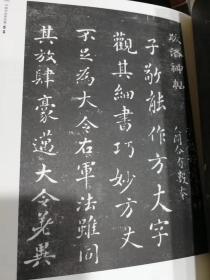 跋洛神賦
子敬能作方丈字
觀其細書巧妙方丈
不足為大令右軍法雖同
其放肆豪邁大令差異